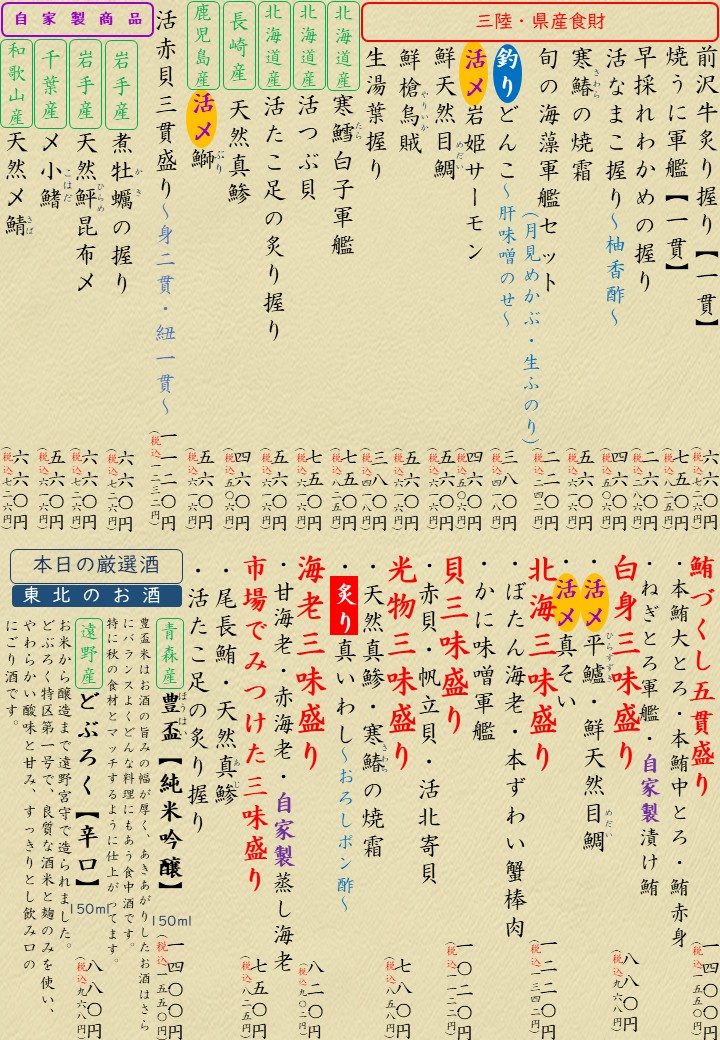 三陸・県産食財
前沢牛炙り握り【一貫】
六六〇円
(税込七二六円)
焼うに軍艦【一貫】
七五〇円
(税込八二五円)
早採れわかめの握り
二六〇円
(税込二八六円)
活なまこ握り～柚香酢～
五六〇円
(税込六一六円)
寒鰆の焼霜
さわら
五六〇円
(税込六一六円)
旬の海藻軍艦セット
(月見めかぶ・生ふのり)
二二〇円
(税込二四二円)
釣りどんこ～肝味噌のせ～
三八〇円
(税込四一八円)
活〆岩姫サーモン
四六〇円
(税込五〇六円)
鮮天然目鯛
めだい
五六〇円
(税込六一六円)
鮮槍烏賊
やりいか
五六〇円
(税込六一六円)
生湯葉握り
三八〇円
(税込四一八円)
北海道産
寒鱈白子軍艦
たら
七五〇円
(税込八二五円)
北海道産
活つぶ貝
七五〇円
(税込八二五円)
北海道産
活たこ足の炙り握り
五六〇円
(税込六一六円)
長崎産
天然真鯵
四六〇円
(税込五〇六円)
鹿児島産
活〆鰤
ぶり
五六〇円
(税込六一六円)
活赤貝三貫盛り～身二貫・紐一貫～
一一二〇円
(税込一二三二円)
自家製商品
岩手産
煮牡蠣の握り
かき
六六〇円
(税込七二六円)
岩手産
天然鮃昆布〆
ひらめ
六六〇円
(税込七二六円)
千葉産
〆小鰭
こはだ
五六〇円
(税込六一六円)
和歌山産
天然〆鯖
さば
六六〇円
(税込七二六円)
鮪づくし五貫盛り
・本鮪大とろ・本鮪中とろ・鮪赤身
・ねぎとろ軍艦・自家製漬け鮪
一四〇〇円
(税込一五五〇円)
白身三味盛り
・活〆平鱸・鮮天然目鯛
ひらすずき
めだい
・活〆真そい
八八〇円
(税込九六八円)
北海三味盛り
・ぼたん海老・本ずわい蟹棒肉
・かに味噌軍艦
一二二〇円
(税込一三四二円)
貝三味盛り
・赤貝・帆立貝・活北寄貝
一〇二〇円
(税込一一二二円)
光物三味盛り
・天然真鯵・寒鰆の焼霜
さわら
・炙り真いわし～おろしポン酢～
七八〇円
(税込八五八円)
海老三味盛り
・甘海老・赤海老・自家製蒸し海老
八二〇円
(税込九〇二円)
市場でみつけた三味盛り
・尾長鮪・天然真鯵
あじ
・活たこ足の炙り握り
七五〇円
(税込八二五円)
本日の厳選酒
東北のお酒
青森産
豊盃【純米吟醸】
ほうはい
150ml
一四〇〇円
(税込一五五〇円)
豊盃米はお酒の旨みの幅が厚く、あきあがりしたお酒はさら
にバランスよくどんな料理にもあう食中酒です。
特に秋の食材とマッチするように仕上がってます。
遠野産
どぶろく【辛口】
150ml
八八〇円
(税込九六八円)
お米から醸造まで遠野宮守で造られました。
どぶろく特区第一号で、良質な酒米と麹のみを使い、
やわらかい酸味と甘み、すっきりとし飲み口の
にごり酒です。